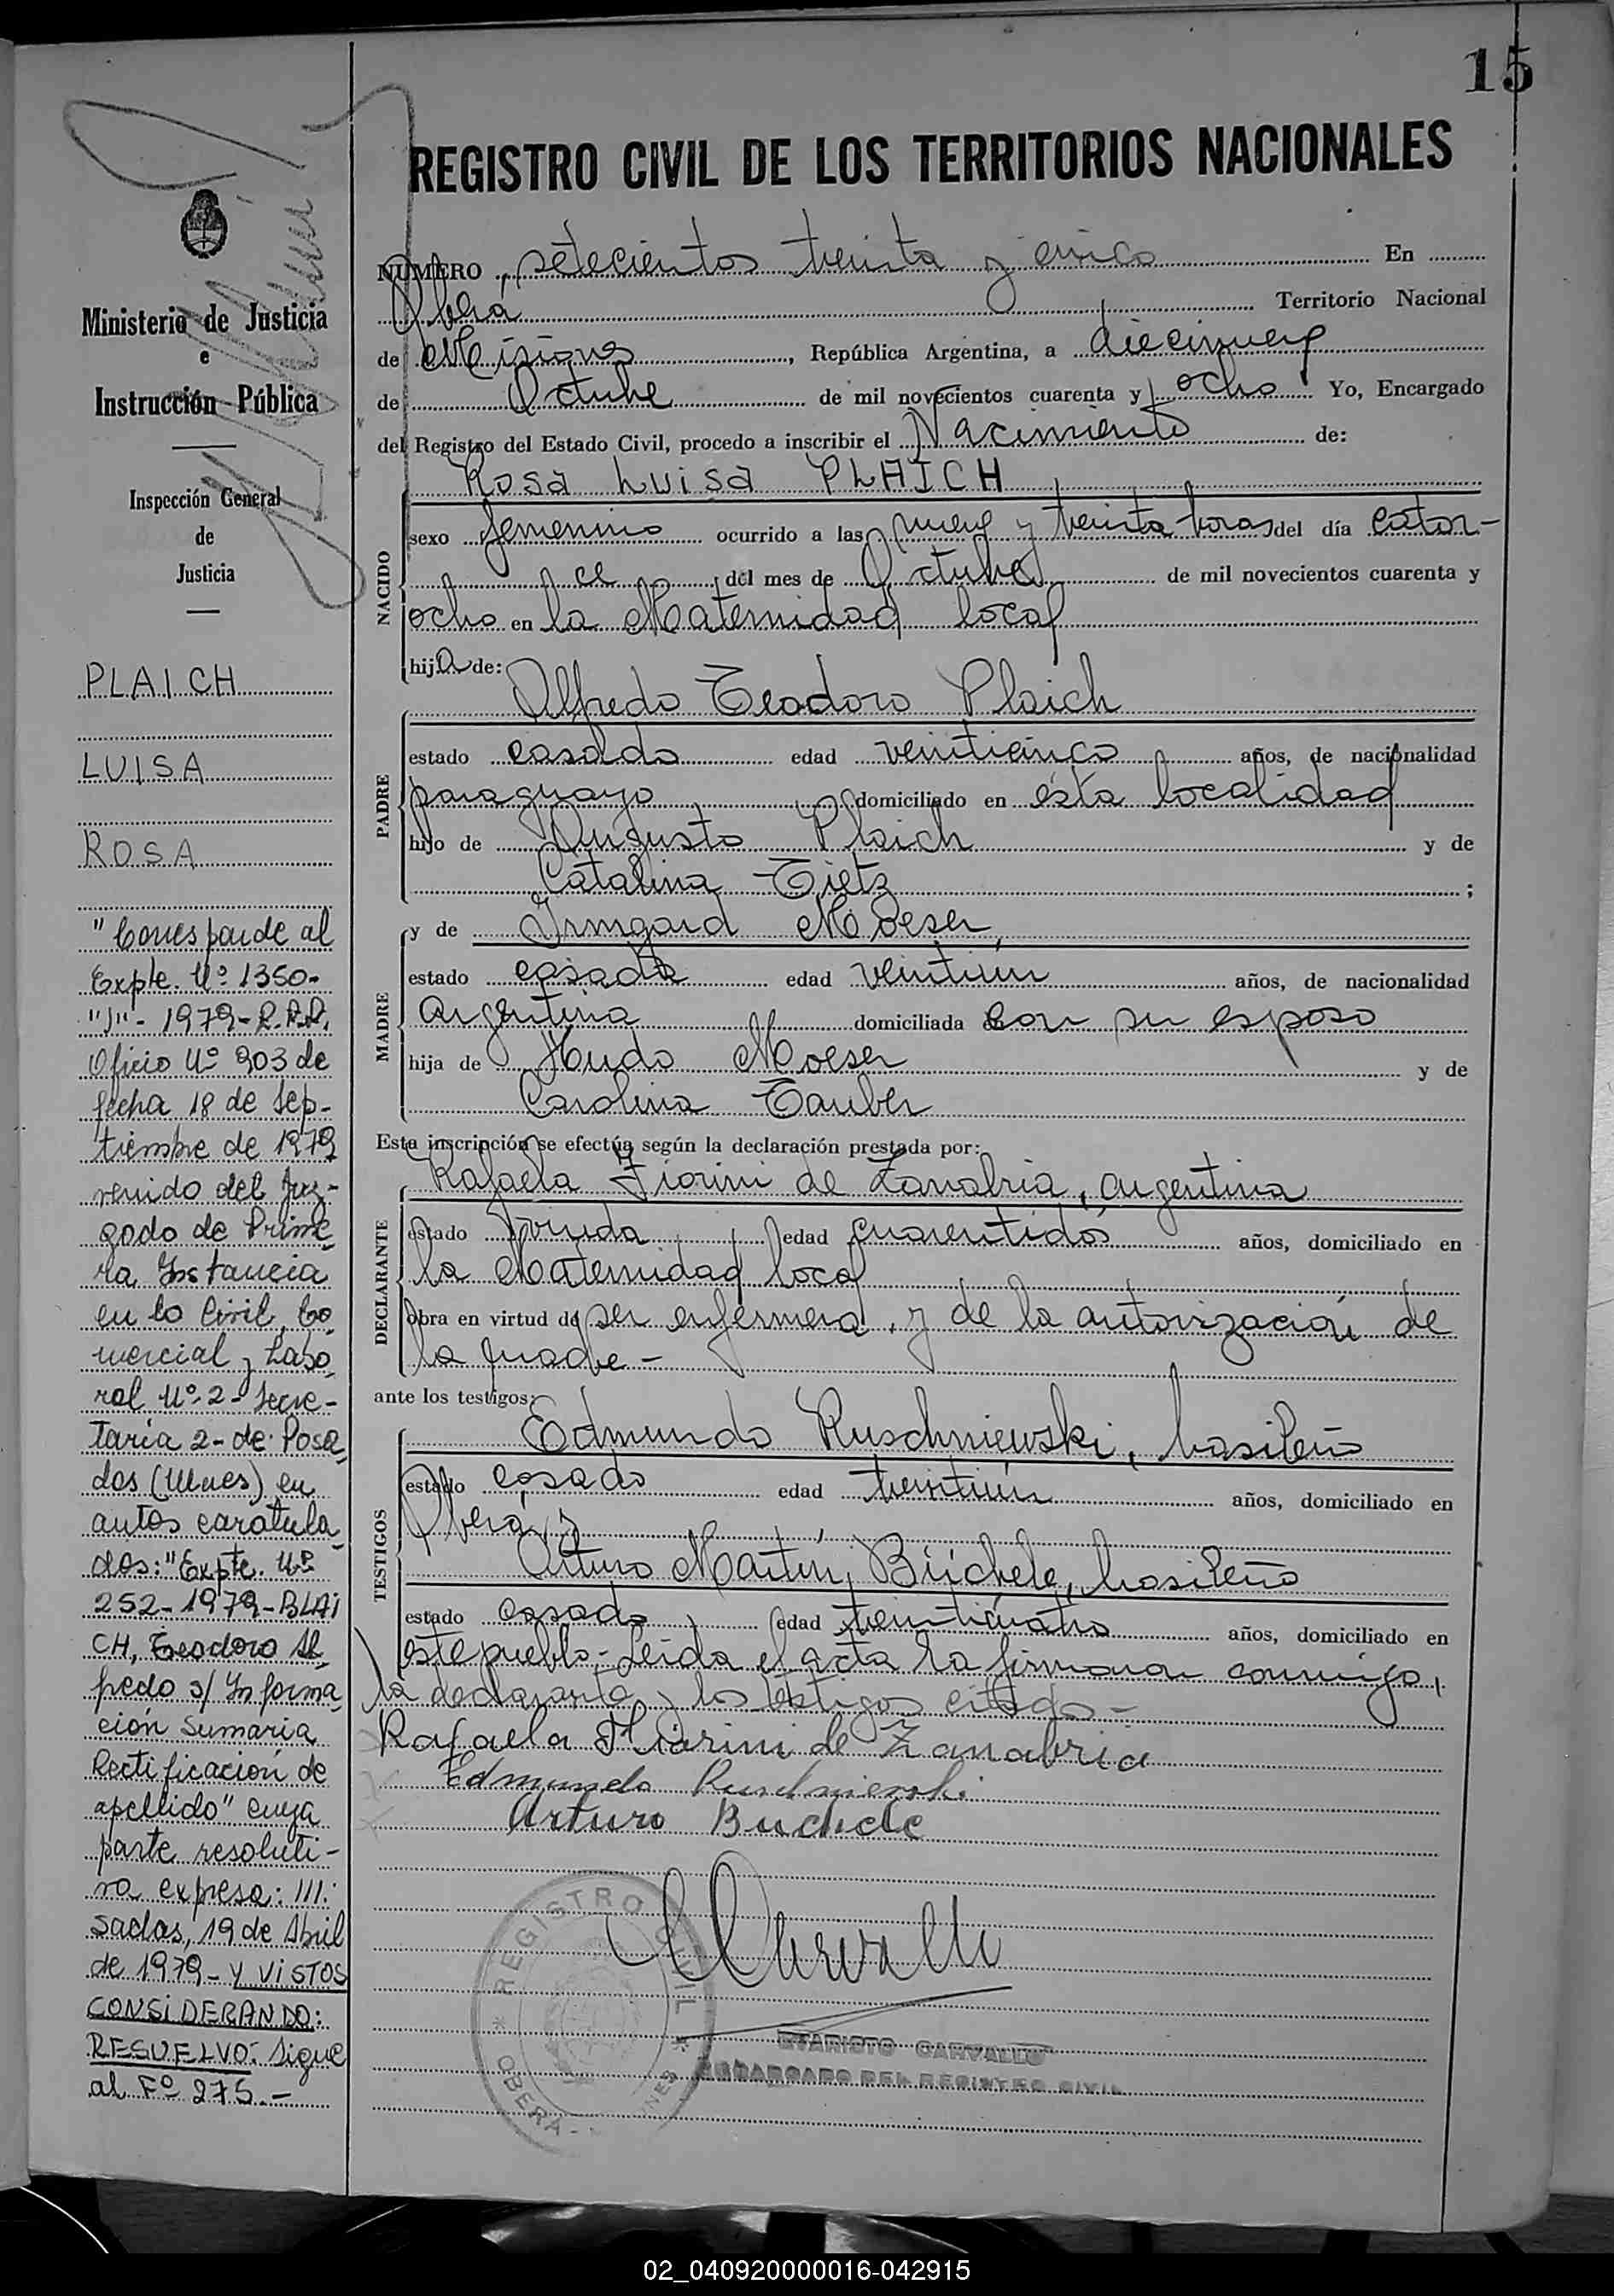 15
REGISTRO CIVIL DE LOS TERRITORIOS NACIONALES
NUMERO setecientos treinta y cinco En
Oberá Territorio Nacional
de Misiones, República Argentina, a diecinueve
de Octubre de mil novecientos cuarenta y ocho Yo, Encargado
del Registro del Estado Civil, procedo a inscribir el Nacimiento de:
Rosa Luisa PLAICH
NACIDO
sexo femenino ocurrido a las nueve y treinta horas del día cator-
ce del mes de Octubre de mil novecientos cuarenta y
ocho en la Maternidad local
hija de:
Alfredo Teodoro Plaich
PADRE
estado casado edad veinticinco años, de nacionalidad
paraguayo domiciliado en ésta localidad
hijo de Augusto Plaich y de
Catalina Tietz ;
y de Irmgard Moeser
MADRE
estado casada edad veintiún años, de nacionalidad
argentina domiciliada con su esposo
hija de Hudo Moeser y de
Carolina Tauber
Esta inscripción se efectúa según la declaración prestada por:
Rafaela Fiorini de Zanabria, argentina
DECLARANTE
estado viuda edad cuarentidós años, domiciliado en
la Maternidad local
obra en virtud de ser enfermera, y de la autorización de
la madre -
ante los testigos:
Edmundo Ruschniewski, brasileño
TESTIGOS
estado casado edad treintiún años, domiciliado en
Oberá y
Arturo Martín Büchele, brasileño
estado casado edad treinticuatro años, domiciliado en
este pueblo - Leída el acta la firmaron conmigo,
la declarante y los testigos citados -
Rafaela Fiorini de Zanabria
Edmundo Ruschniewski
Arturo Buchele
REGISTRO CIVIL
OBERA
EVARISTO CARVALLO
ENCARGADO DEL REGISTRO CIVIL
Ministerio de Justicia
e
Instrucción Pública
Inspección General
de
Justicia
PLAICH
LUISA
ROSA
"Corresponde al
Expte. Nº 1350-
"J"- 1979-R.P.P.
Oficio Nº 903 de
fecha 18 de Sep-
tiembre de 1979
venido del Juz-
gado de Prime-
ra Instancia
en lo Civil, Co-
mercial y Labo-
ral Nº 2- Secre-
taría 2- de Posa-
das (Mnes) en
autos caratula-
dos: "Expte. Nº
252-1979-BLAI
CH, Teodoro Al-
fredo s/ Informa-
ción Sumaria
Rectificación de
apellido" cuya
parte resoluti-
va expresa: ///:
sadas, 19 de Abril
de 1979- Y VISTOS
CONSIDERANDO:
RESUELVO: sigue
al Fº 275.-
02_040920000016-042915